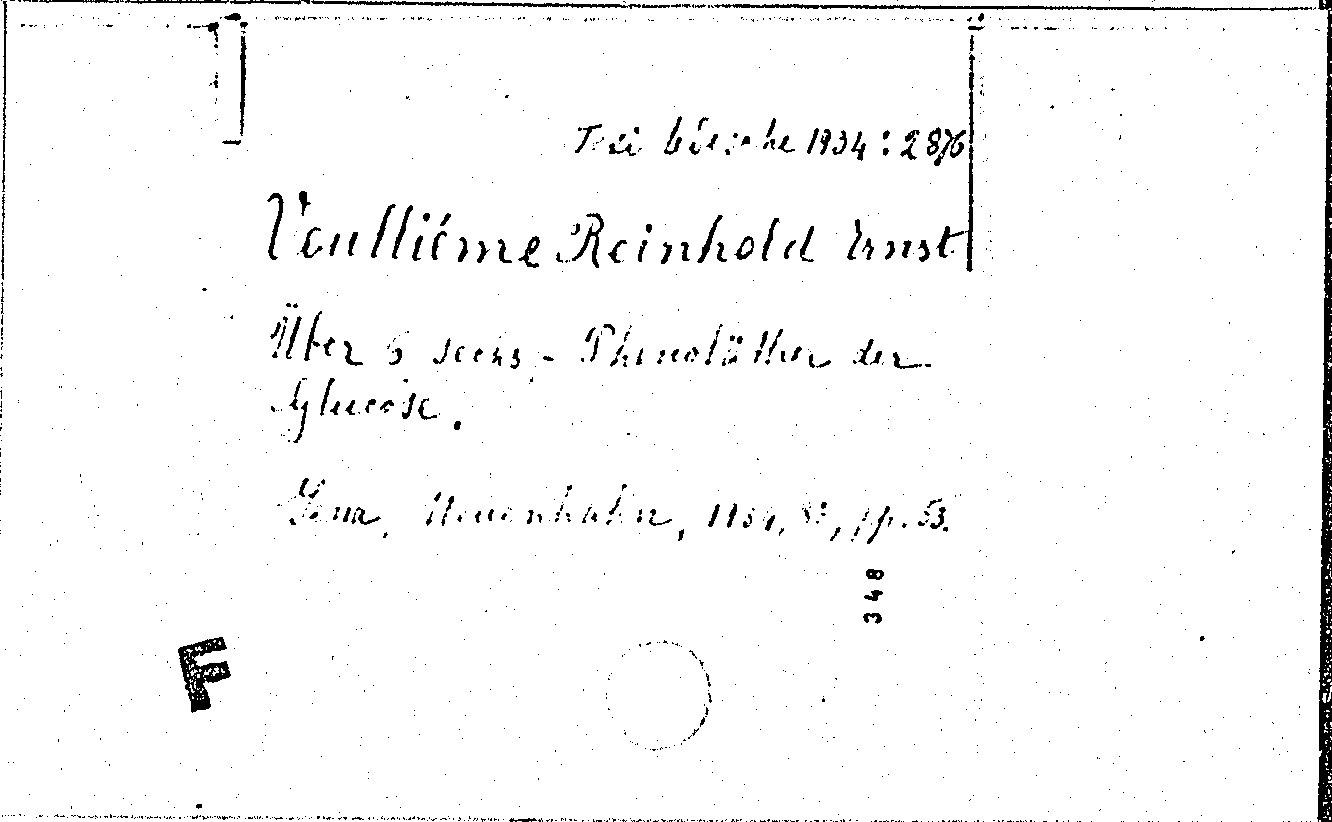 Tesi tedesche 1934 : 2876
Voulliéme Reinhold Ernst
Über 6 - Phenoläther der
Glucose.
Jena, Neuenhahn, 1934, 8°, pp. 53.
348
F